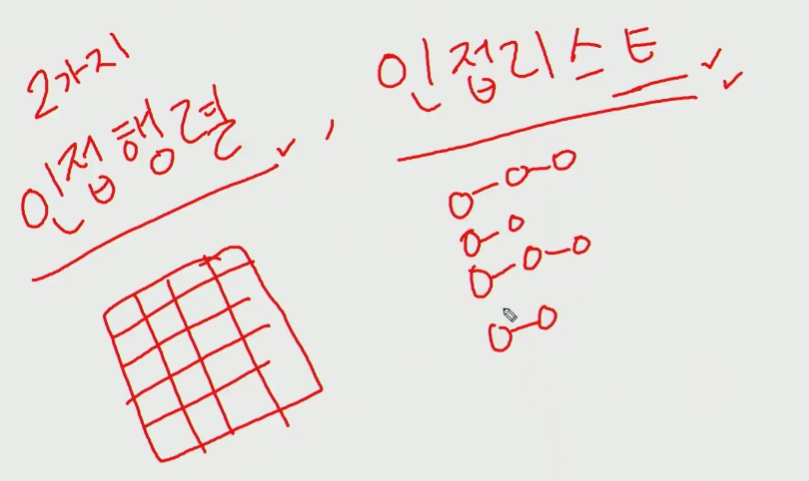 2가지
인접행렬, 인접리스트